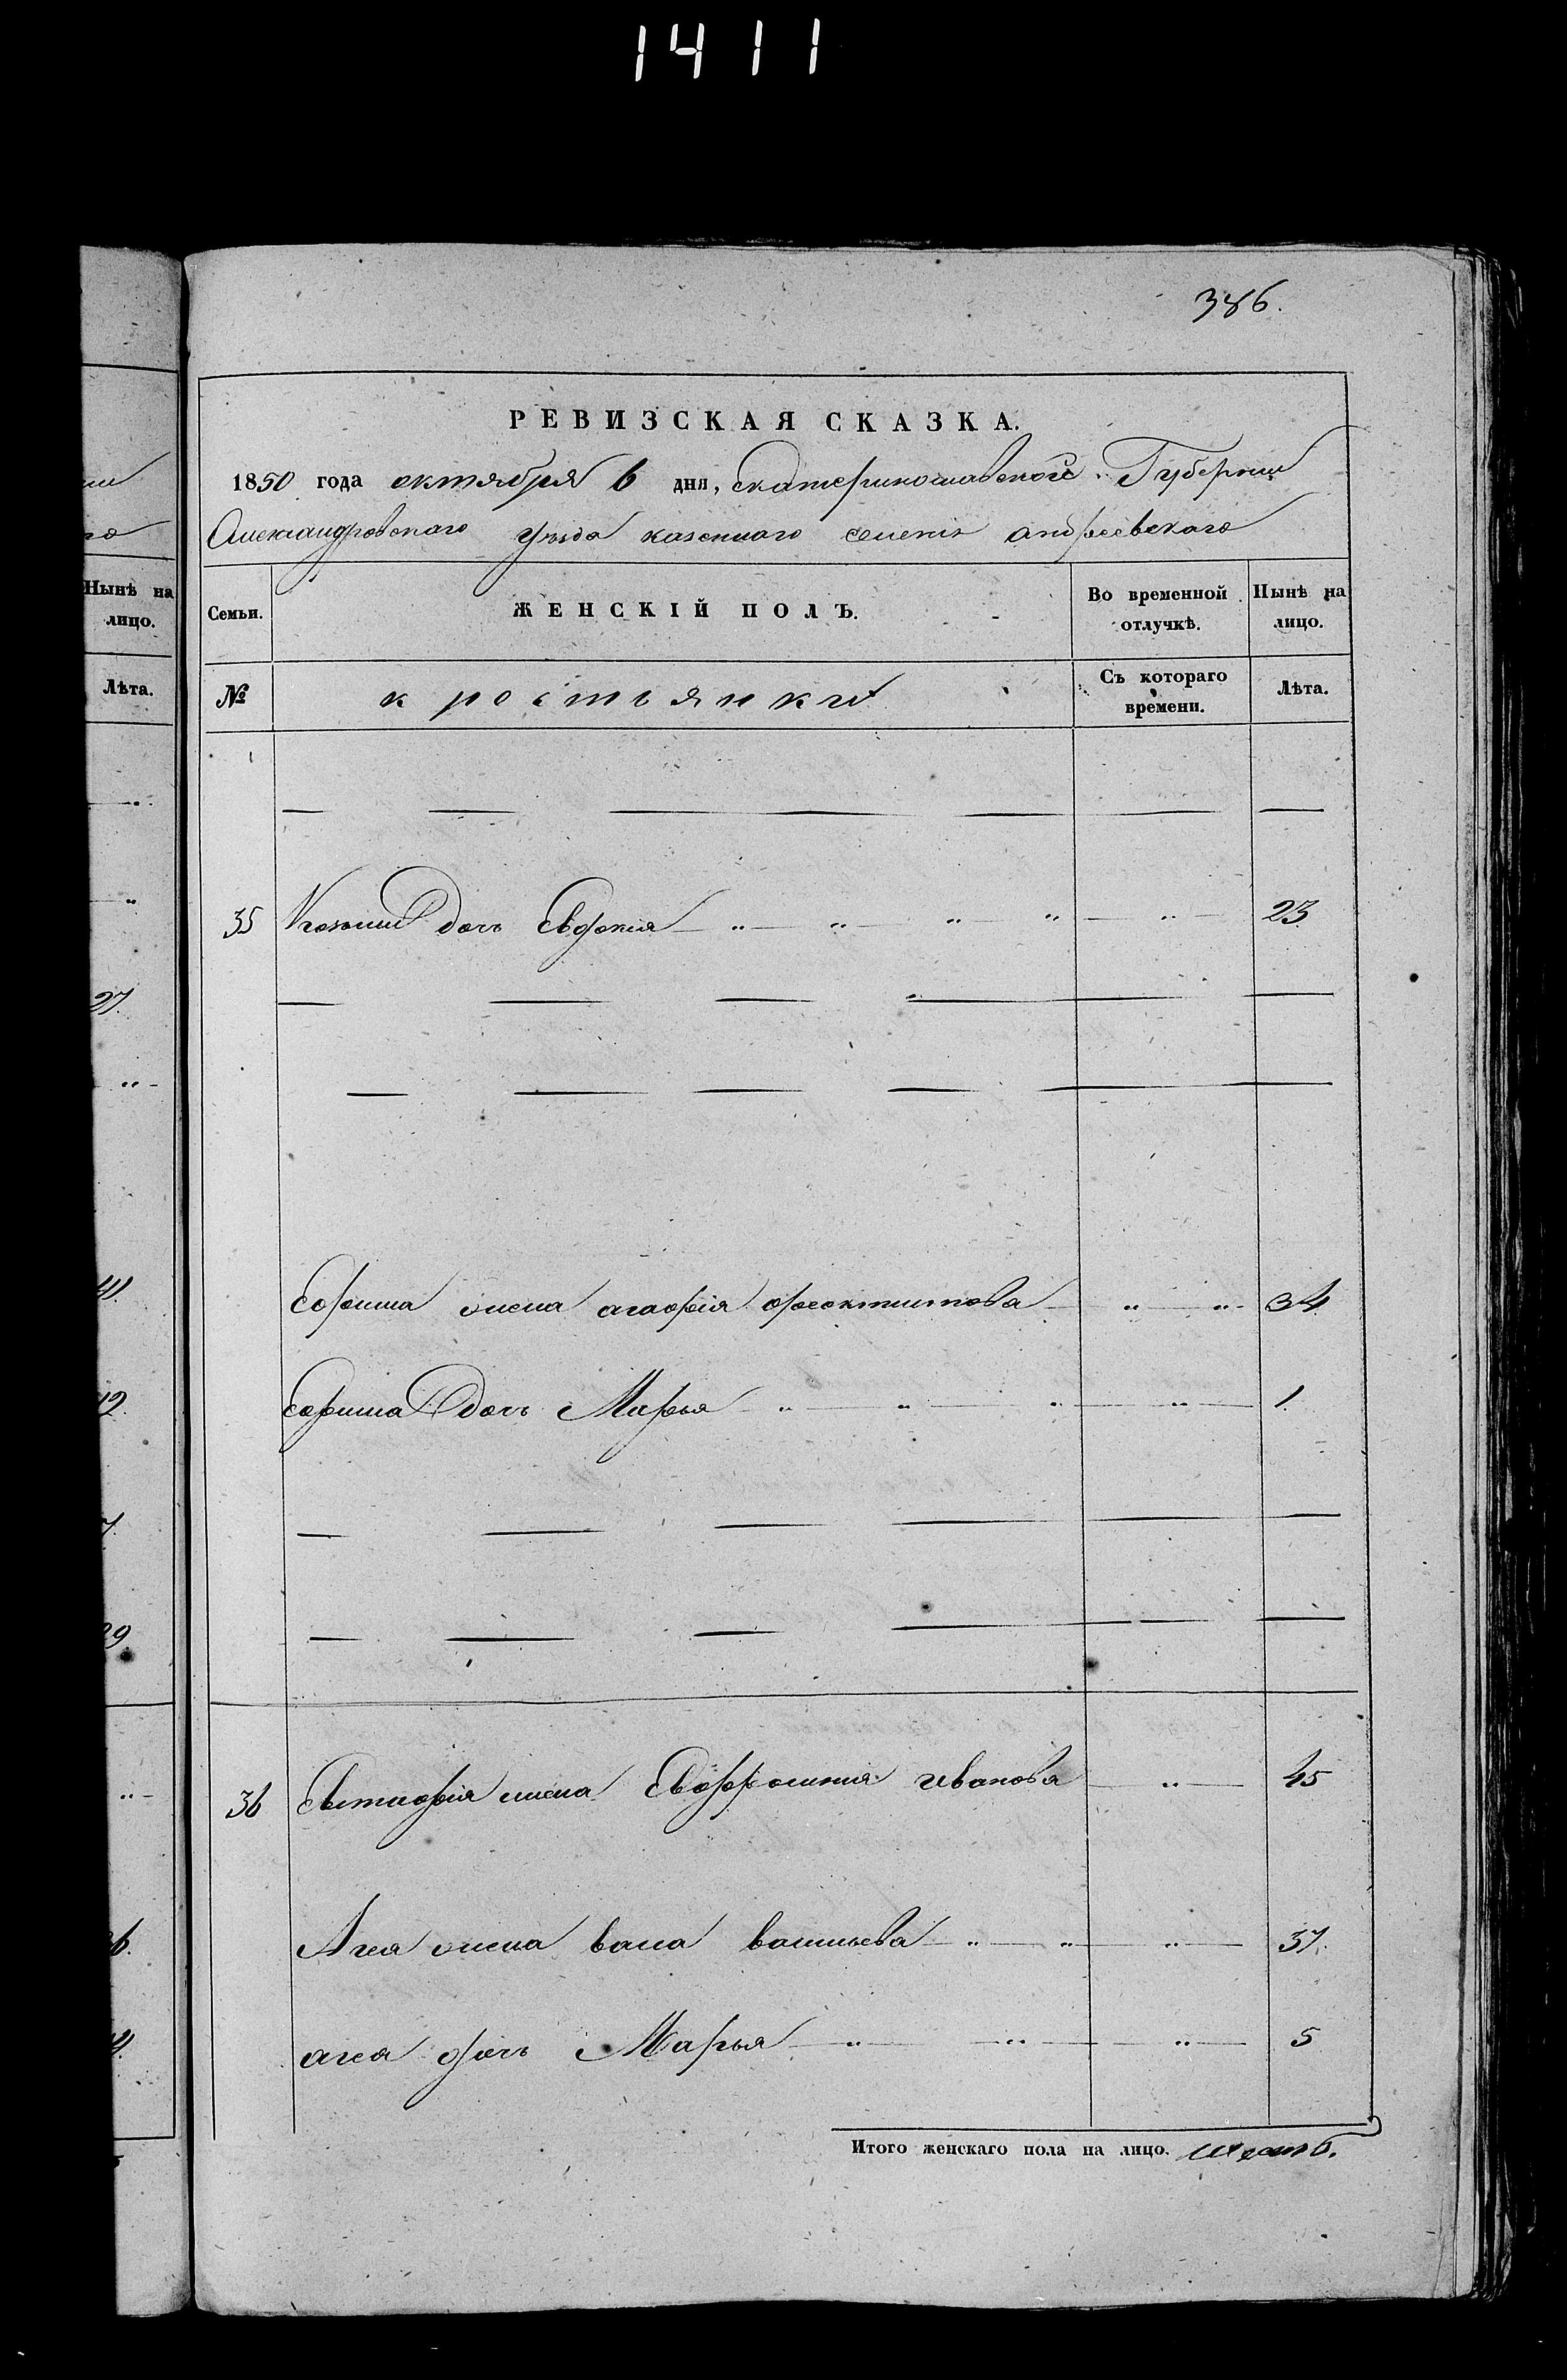 1411
386.
РЕВИЗСКАЯ СКАЗКА.
1850 года октября 6 дня, Екатеринославской Губернии
Александровского уезда казенного селения андреевского
Нынѣ на лицо.
Лѣта.
27.
Семьи.
ЖЕНСКІЙ ПОЛЪ.
Во временной отлучкѣ.
Нынѣ на лицо.
№
крестьянки
Съ котораго времени.
Лѣта.
35 дочь 23.
Ефима жена агафія феоктистова 34
Ефима дочь Марья 1.
36 Евстафія жена Евфросинія иванова 45
Агея жена васса васильева 37.
агея дочь Марья 5
Итого женскаго пола на лицо. шесть.